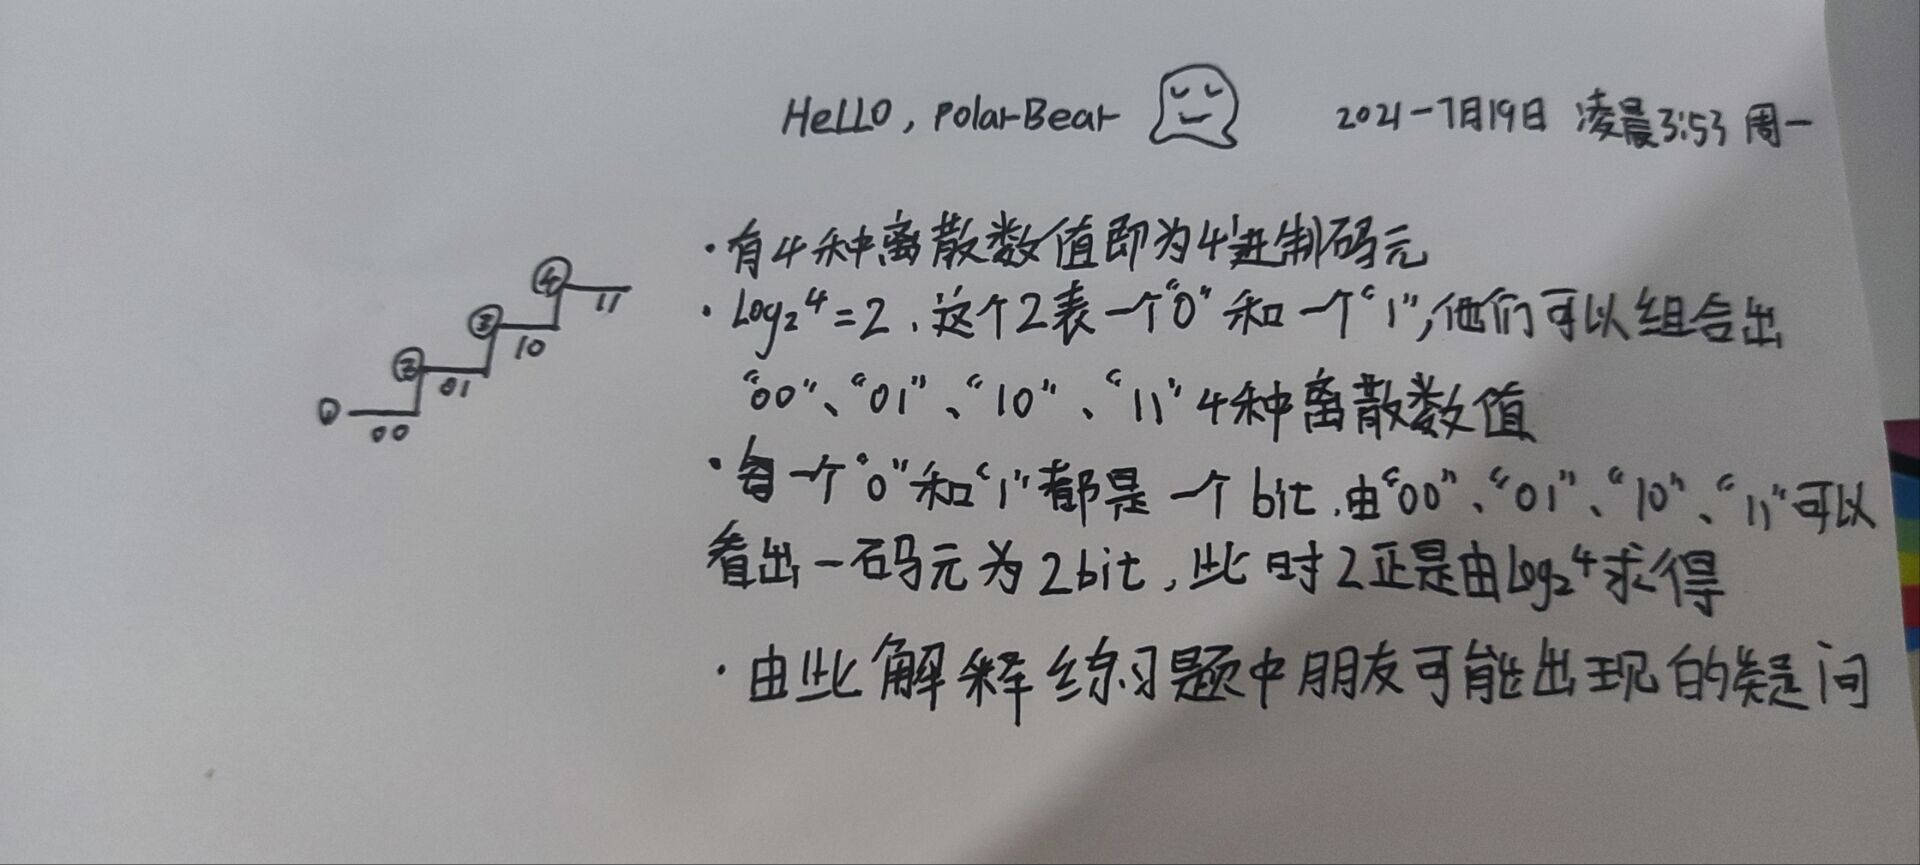 Hello, PolarBear 2021-7月19日 凌晨3:53 周一
·有4种离散数值即为4进制码元
·Log₂⁴=2.这个2表一个"0"和一个"1",他们可以组合出
"00"、"01"、"10"、"11"4种离散数值
·每一个"0"和"1"都是一个bit.由"00"、"01"、"10"、"11"可以
看出一码元为2bit,此时2正是由Log₂⁴求得
·由此解释练习题中朋友可能出现的疑问
④ 11
③ 10
② 01
① 00